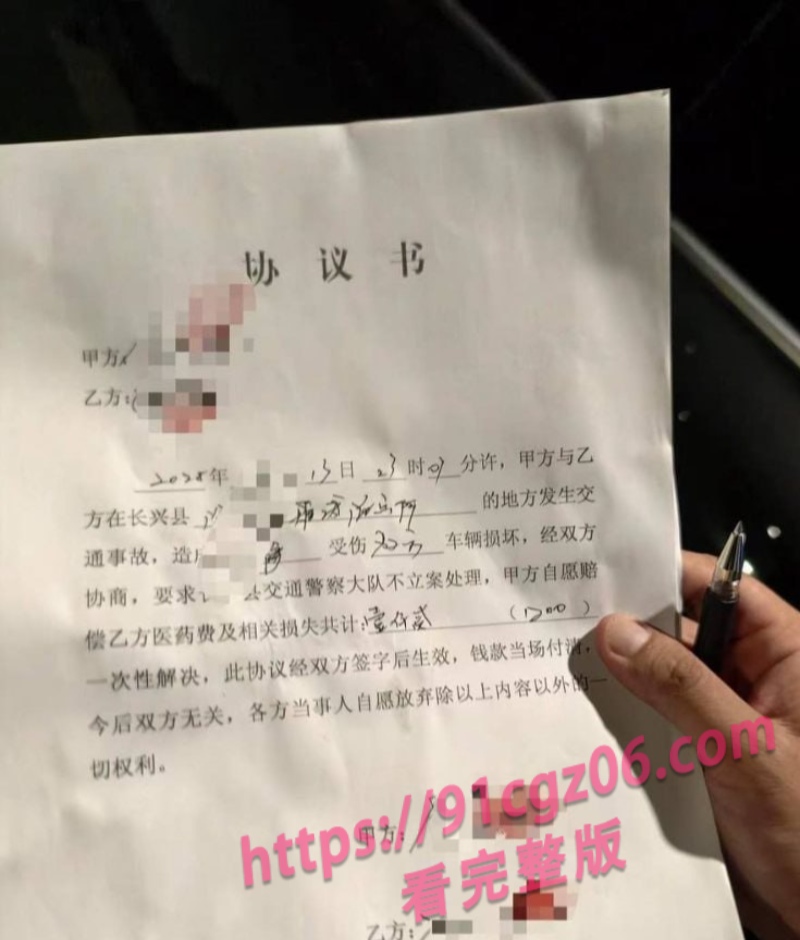 协 议 书
甲方
乙方:
2025年 13日 23时07分许，甲方与乙
方在长兴县 派出所 的地方发生交
通事故，造 受伤 双方 车辆损坏，经双方
协商，要求 县交通警察大队不立案处理，甲方自愿赔
偿乙方医药费及相关损失共计:壹仟贰 (1200)
一次性解决，此协议经双方签字后生效，钱款当场付清，
今后双方无关，各方当事人自愿放弃除以上内容以外的一
切权利。
甲方:
https://91cgz06.com
看完整版
乙方: